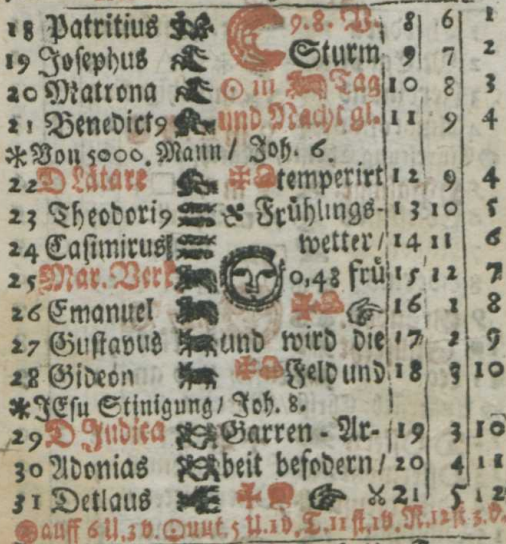 18 Patritius 9. 8. V. 8 6 1
19 Josephus Sturm 9 7 2
20 Matrona ☉ in Tag 10 8 3
21 Benedict9 und Nacht gl. 11 9 4
* Von 5000. Mann / Joh. 6.
22 D Lätare temperirt 12 9 4
23 Theodori9 & Frühlings- 13 10 5
24 Casimirus wetter / 14 11 6
25 Mar. Verk 0,48 frü 15 12 7
26 Emanuel 16 1 8
27 Gustavus und wird die 17 2 9
28 Gideon Feld und 18 3 10
* JEsu Stinigung / Joh. 8.
29 D Judica Garren - Ar- 19 3 10
30 Adonias beit befodern / 20 4 11
31 Detlaus 21 5 12
auff 6 U. 3 v. ☉ unt. 5 U. 1 v. T. 11 st. 1 v. N. 12 st 3. v.